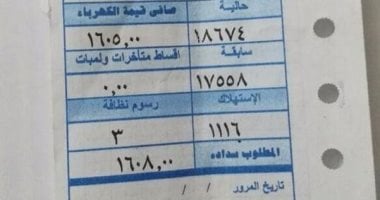 حالية
صافى قيمة الكهرباء
١٨٦٧٤
١٦٠٥,٠٠
سابقة
اقساط متأخرات ولمبات
١٧٥٥٨
٠,٠٠
الإستهلاك
رسوم نظافة
١١١٦
٣
المطلوب سداده
١٦٠٨,٠٠
تاريخ المرور / /